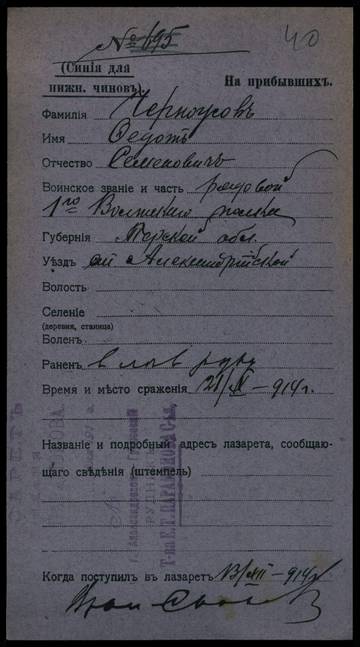 № 695
40
(Синія для
нижн. чиновъ).
На прибывшихъ.
Фамилія Черноусовъ
Имя Федотъ
Отчество Семеновичъ
Воинское званіе и часть рядовой
1го Волжскаго полка
Губернія Терской обл.
Уѣздъ ст Александрійской
Волость
Селеніе
(деревня, станица)
Боленъ
Раненъ в лѣв руку
Время и мѣсто сраженія 21/XI – 914 г.
Названіе и подробный адресъ лазарета, сообщаю-
щаго свѣдѣнія (штемпель)
Т-ва Е.Т. ПАРАМОНОВА С-я.
Когда поступилъ въ лазаретъ 13/XII – 914 г.